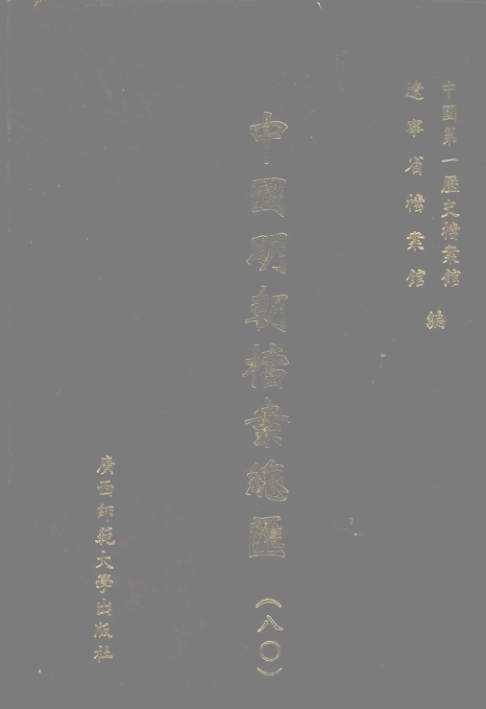 中國第一歷史檔案館
遼寧省檔案館
編
中國明朝檔案總匯
(八〇)
廣西師範大學出版社